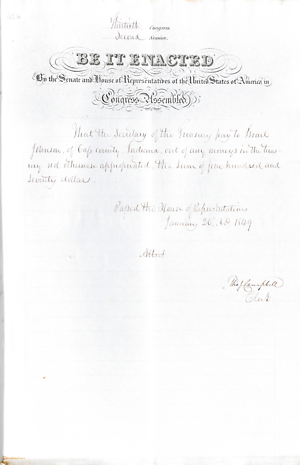 Thirtieth Congress
Second Session
BE IT ENACTED
By the Senate and House of Representatives of the United States of America in
Congress Assembled,
That the Secretary of the Treasury pay to
Johnson, of Cass county Indiana out of any moneys in the trea-
sury not otherwise appropriated the sum of hundred and
seventy dollars.
Passed the House of Representatives
January 1849
Attest
Tho J Campbell
Clerk